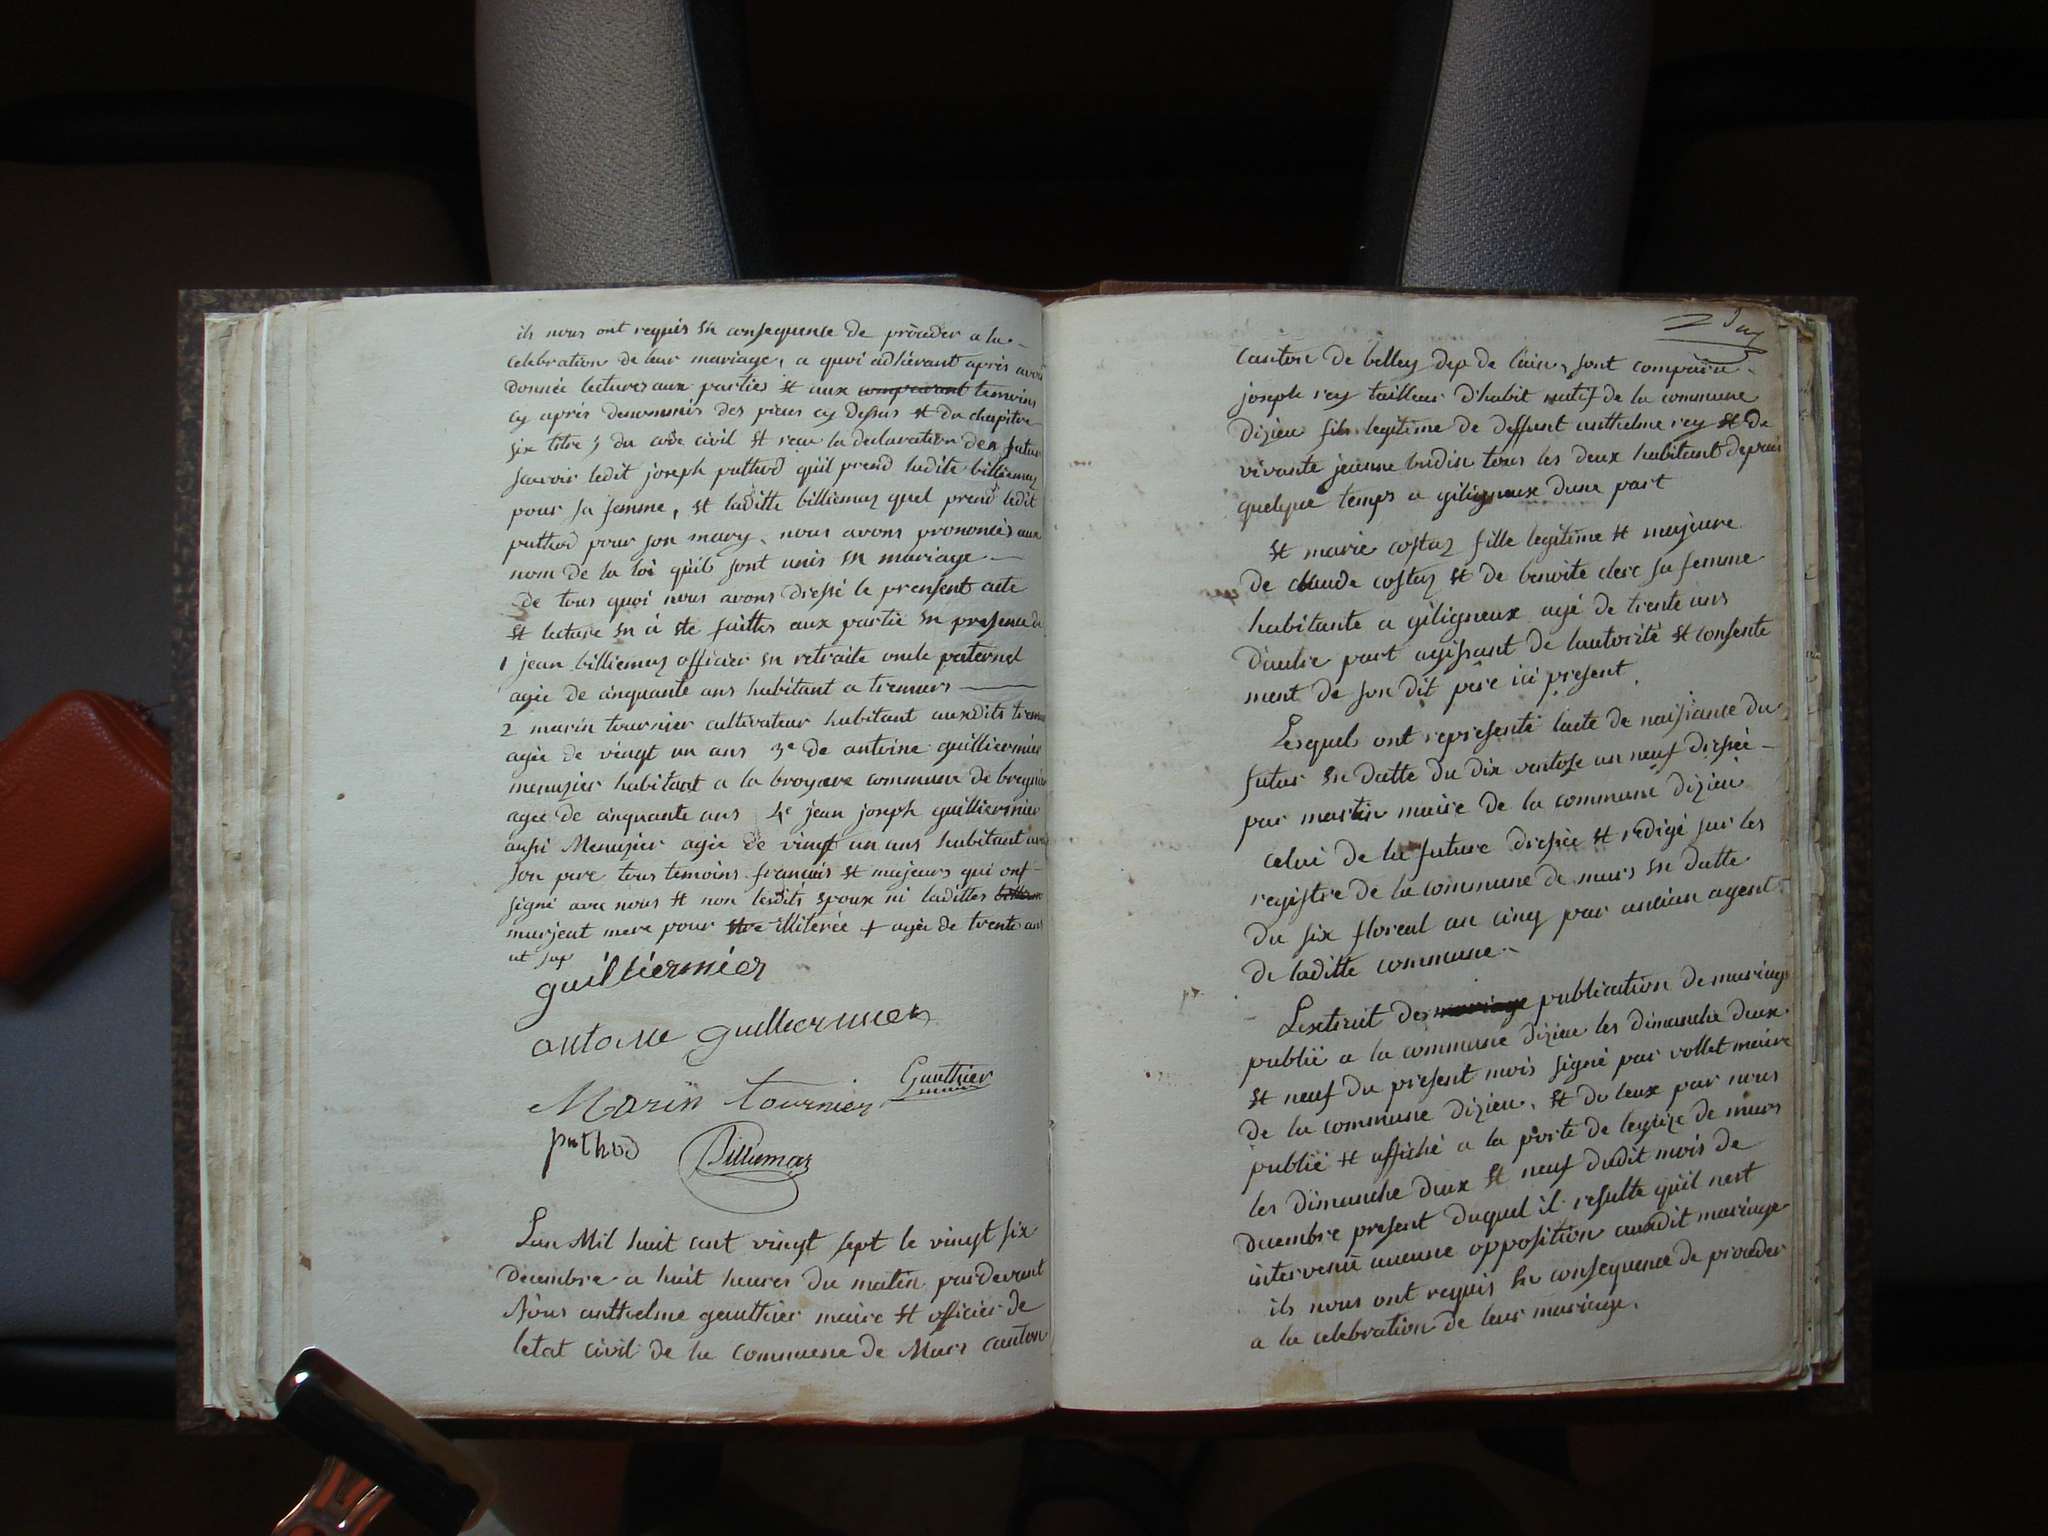 ils nous ont requis en consequence de proceder a la
celebration de leur mariage, a quoi adhérant après avoir
donnée lectures aux parties et aux comparant temoins
cy après denommés des pieces cy dessus et du chapitre
six titre 5 du code civil et recu la declaration des futur
savoir ledit joseph puthod qu'il prend ladite billiemaz
pour sa femme, et laditte billiemaz quel prend ledit
puthod pour son mary, nous avons prononcés aux
nom de la loi qu'ils sont unis en mariage
de tous quoi nous avons dressé le prensent acte
et lecture en à ete faittes aux partie en presence de
1 jean billiemaz officier en retraite oncle paternel
agée de cinquante ans habitant a tremurs
2 marin tournier cultivateur habitant auxdits tremurs
agée de vingt un ans 3e de antoine guilliermier
menuzier habitant a la broyere commune de bregnier
agee de cinquante ans 4e jean joseph guilliermier
aussi Menuzier agée de vingt un ans habitant avec
son pere tous temoins francais et majeurs qui ont
signé avec nous et non lesdits epoux ni ladittes
marjeat mere pour etre illiterée + agée de trente ans
ut sup
guilliermier
antoine guilliermier
Gauthier
Marin tournier
puthod
Billiemaz
Lan Mil huit cent vingt sept le vingt six
decembre a huit heures du matin pardevant
Nous anthelme gauthier maire et officier de
letat civil de la commune de Murs canton
2
canton de belley dep de lain, sont comparu
joseph rey tailleur d'habit natif de la commune
dizieu fils legitime de deffunt anthelme rey et de
vivante jeanne budin tous les deux habitant depuis
quelque temps a giligneux dune part
et marie costaz fille legitime et majeure
de claude costaz et de benoite clerc sa femme
habitante a giligneux agé de trente ans
d'autre part agissant de lautorité et consente
ment de son dit père ici present,
Lesquels ont representé lacte de naissance du
futur en datte du dix ventose an neuf dressée
par martin maire de la commune dizieu
celui de la future dressée et redigé sur les
registre de la commune de murs en datte
du six floreal an cinq par ancien agent
de laditte commune
Lextrait des mariage publication de mariage
publiè a la commune dizieu les dimanche deux
et neuf du present mois signé par vollet maire
de la commune dizieu, et de ceux par nous
publiè et affiché a la porte de leglize de murs
les dimanche deux et neuf dudit mois de
decembre present duquel il resulte quil nest
intervenu aucune opposition auxdit mariage
ils nous ont requis en consequence de proceder
a la celebration de leur mariage.